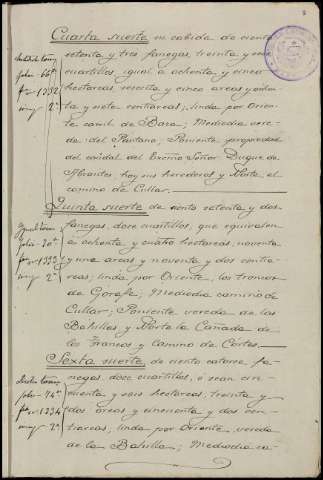 Cuarta suerte en cabida de ciento
setenta y tres fanegas, treinta y
cuartillos igual a ochenta y cinco
hectareas, sesenta y cinco areas y
y siete centiareas; linda por Orien-
te carril de Baza; Mediodia vere-
da del Pantano; Poniente propiedad
del caudal del Excmo Señor Duque de
Abrantes, hoy sus herederos y Norte el
camino de Cullar.
Quinta suerte de ciento setenta y dos
fanegas, doce cuartillos, que equivalen
a ochenta y cuatro hectareas, noventa
y una areas y noventa y dos centia-
reas; linda por Oriente, los
de Gorafe; Mediodia camino de
Cullar; Poniente vereda de las
Batillas y Norte la Cañada de
los Francos y camino de Cortes.
Sexta suerte, de ciento catorce fa-
negas, doce cuartillos, ó sean cin-
cuenta y seis hectareas, treinta y
dos areas y cincuenta y dos cen-
tiareas; linda por Oriente, vereda
de la Batilla; Mediodia ca-
folio 66
1332
2ª
folio 70
1333
2ª
folio 74
1334
2ª